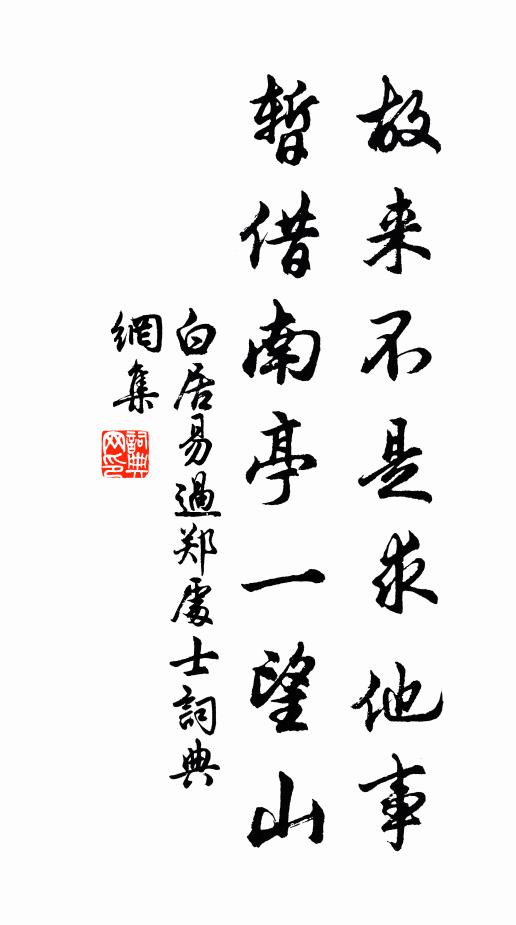 故来不是求他事
暂借南亭一望山
白居易過郑處士詞典
網集
詞典网印